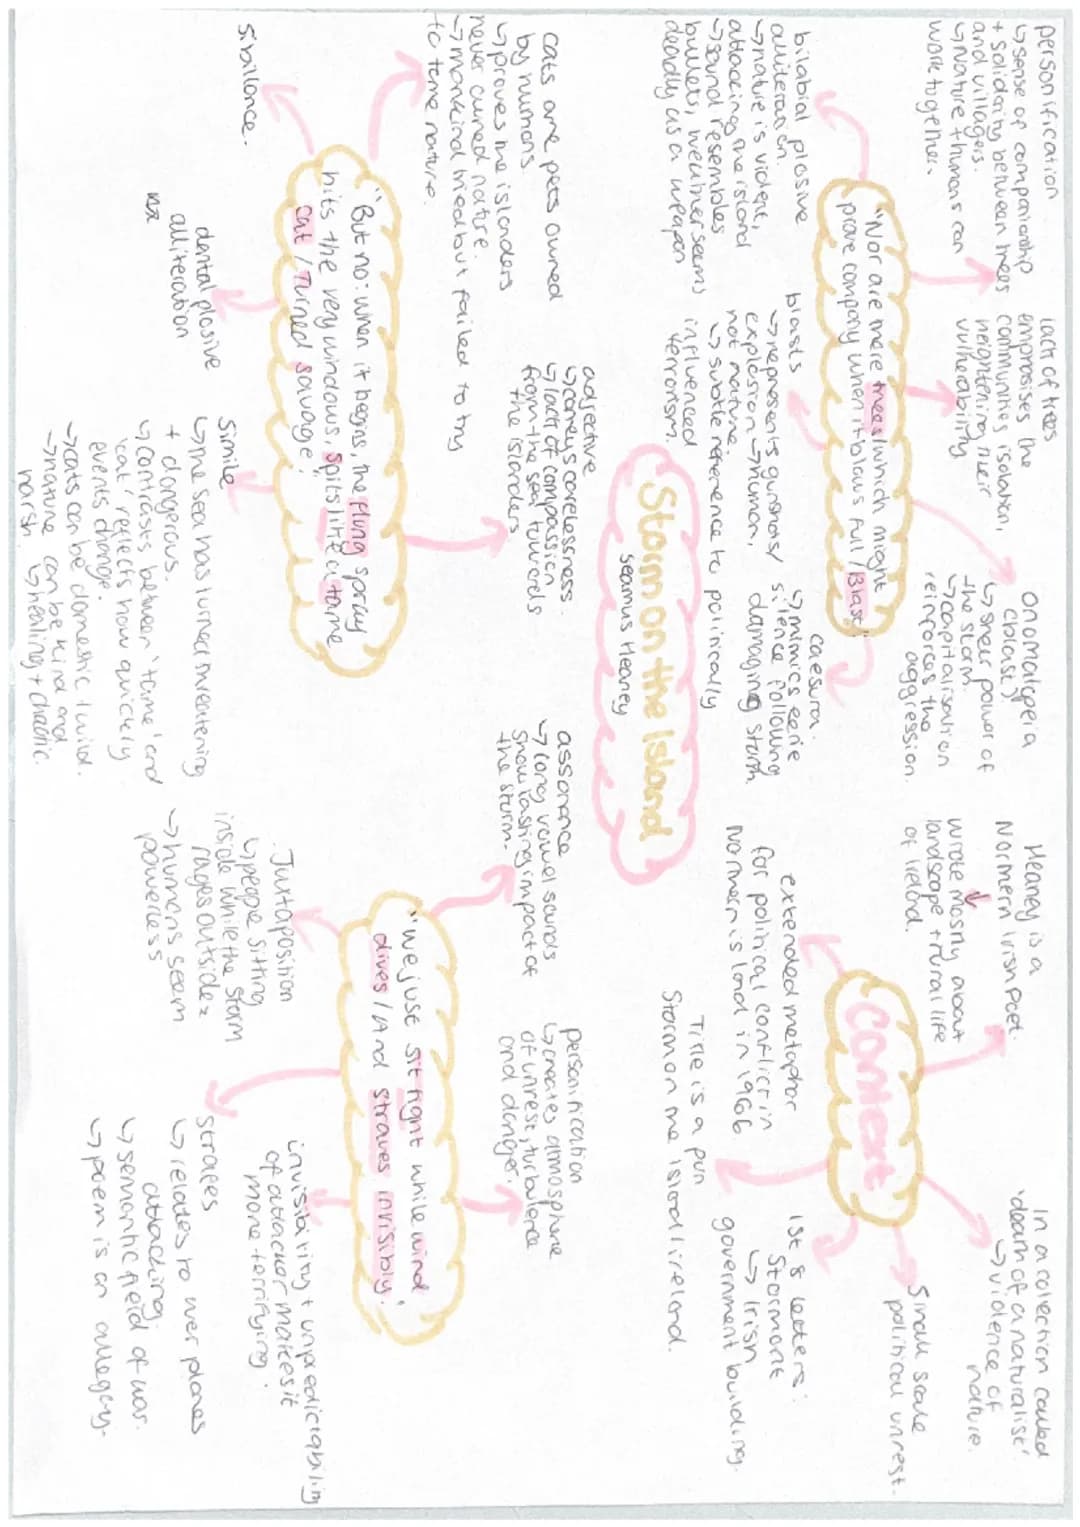 personification
↳sense of companionship
+ solidarity between trees
and villagers.
↳Nature + humans can
work together.
lack of trees
emphasises the
communities isolation,
heightening their
vulnerability
onomatopeia
(blast)
↳sheer power of
the storm.
↳capitalisation
reinforces the
aggression.
"Nor are there trees/which might
prove company when it blows full/
Blast"
bilabial plosive
alliteration.
↳nature is violent,
attacking the island
↳sound resembles
bullets, weather seems
deadly as a weapon
blasts
↳represents gunshots/
explosion → human,
not nature.
↳subtle reference to politically
influenced
terrorism.
caesura.
↳mimics eerie
silence following
damaging storm.
Storm on the Island
Seamus Heaney
Context
Heaney is a
Northern Irish poet.
wrote mostly about
landscape + rural life
of Ireland.
In a collection called
'death of a naturalist'
↳violence of
nature.
Small scale
political unrest.
extended metaphor
for political conflict in
Northern island in 1966.
Title is a pun
Storm on the island ireland.
1st 8 letters:
Stormont
↳Irish
government building.
cats are pets owned
by humans
↳proves the islanders
never owned nature.
↳mankind tried but failed to try
to tame nature.
adjective
↳conveys carelessness.
↳lack of compassion
from the sea towards
the islanders
"But no: when it begins, the flung spray
hits the very windows, spits like a tame
cat / Turned savage"
Sibilance.
dental plosive
alliteration
Simile
↳the sea has turned threatening
+ dangerous.
↳contrasts between 'tame' and
'cat' reflects how quickly
events change.
→cats can be domestic / wild.
→nature can be kind and
harsh. ↳healing + chaotic.
assonance
↳long vowel sounds
show lasting impact of
the storm.
personification
↳creates atmosphere
of unrest, turbulence
and danger.
"We just sit tight while wind
dives / And strafes invisibly.
Juxtaposition
↳people sitting
inside while the storm
rages outside
→humans seem
powerless
strafes
↳relates to war planes
attacking.
↳semantic field of war.
↳poem is an allegory.
invisibility + unpredictability
of attacker makes it
more terrifying.